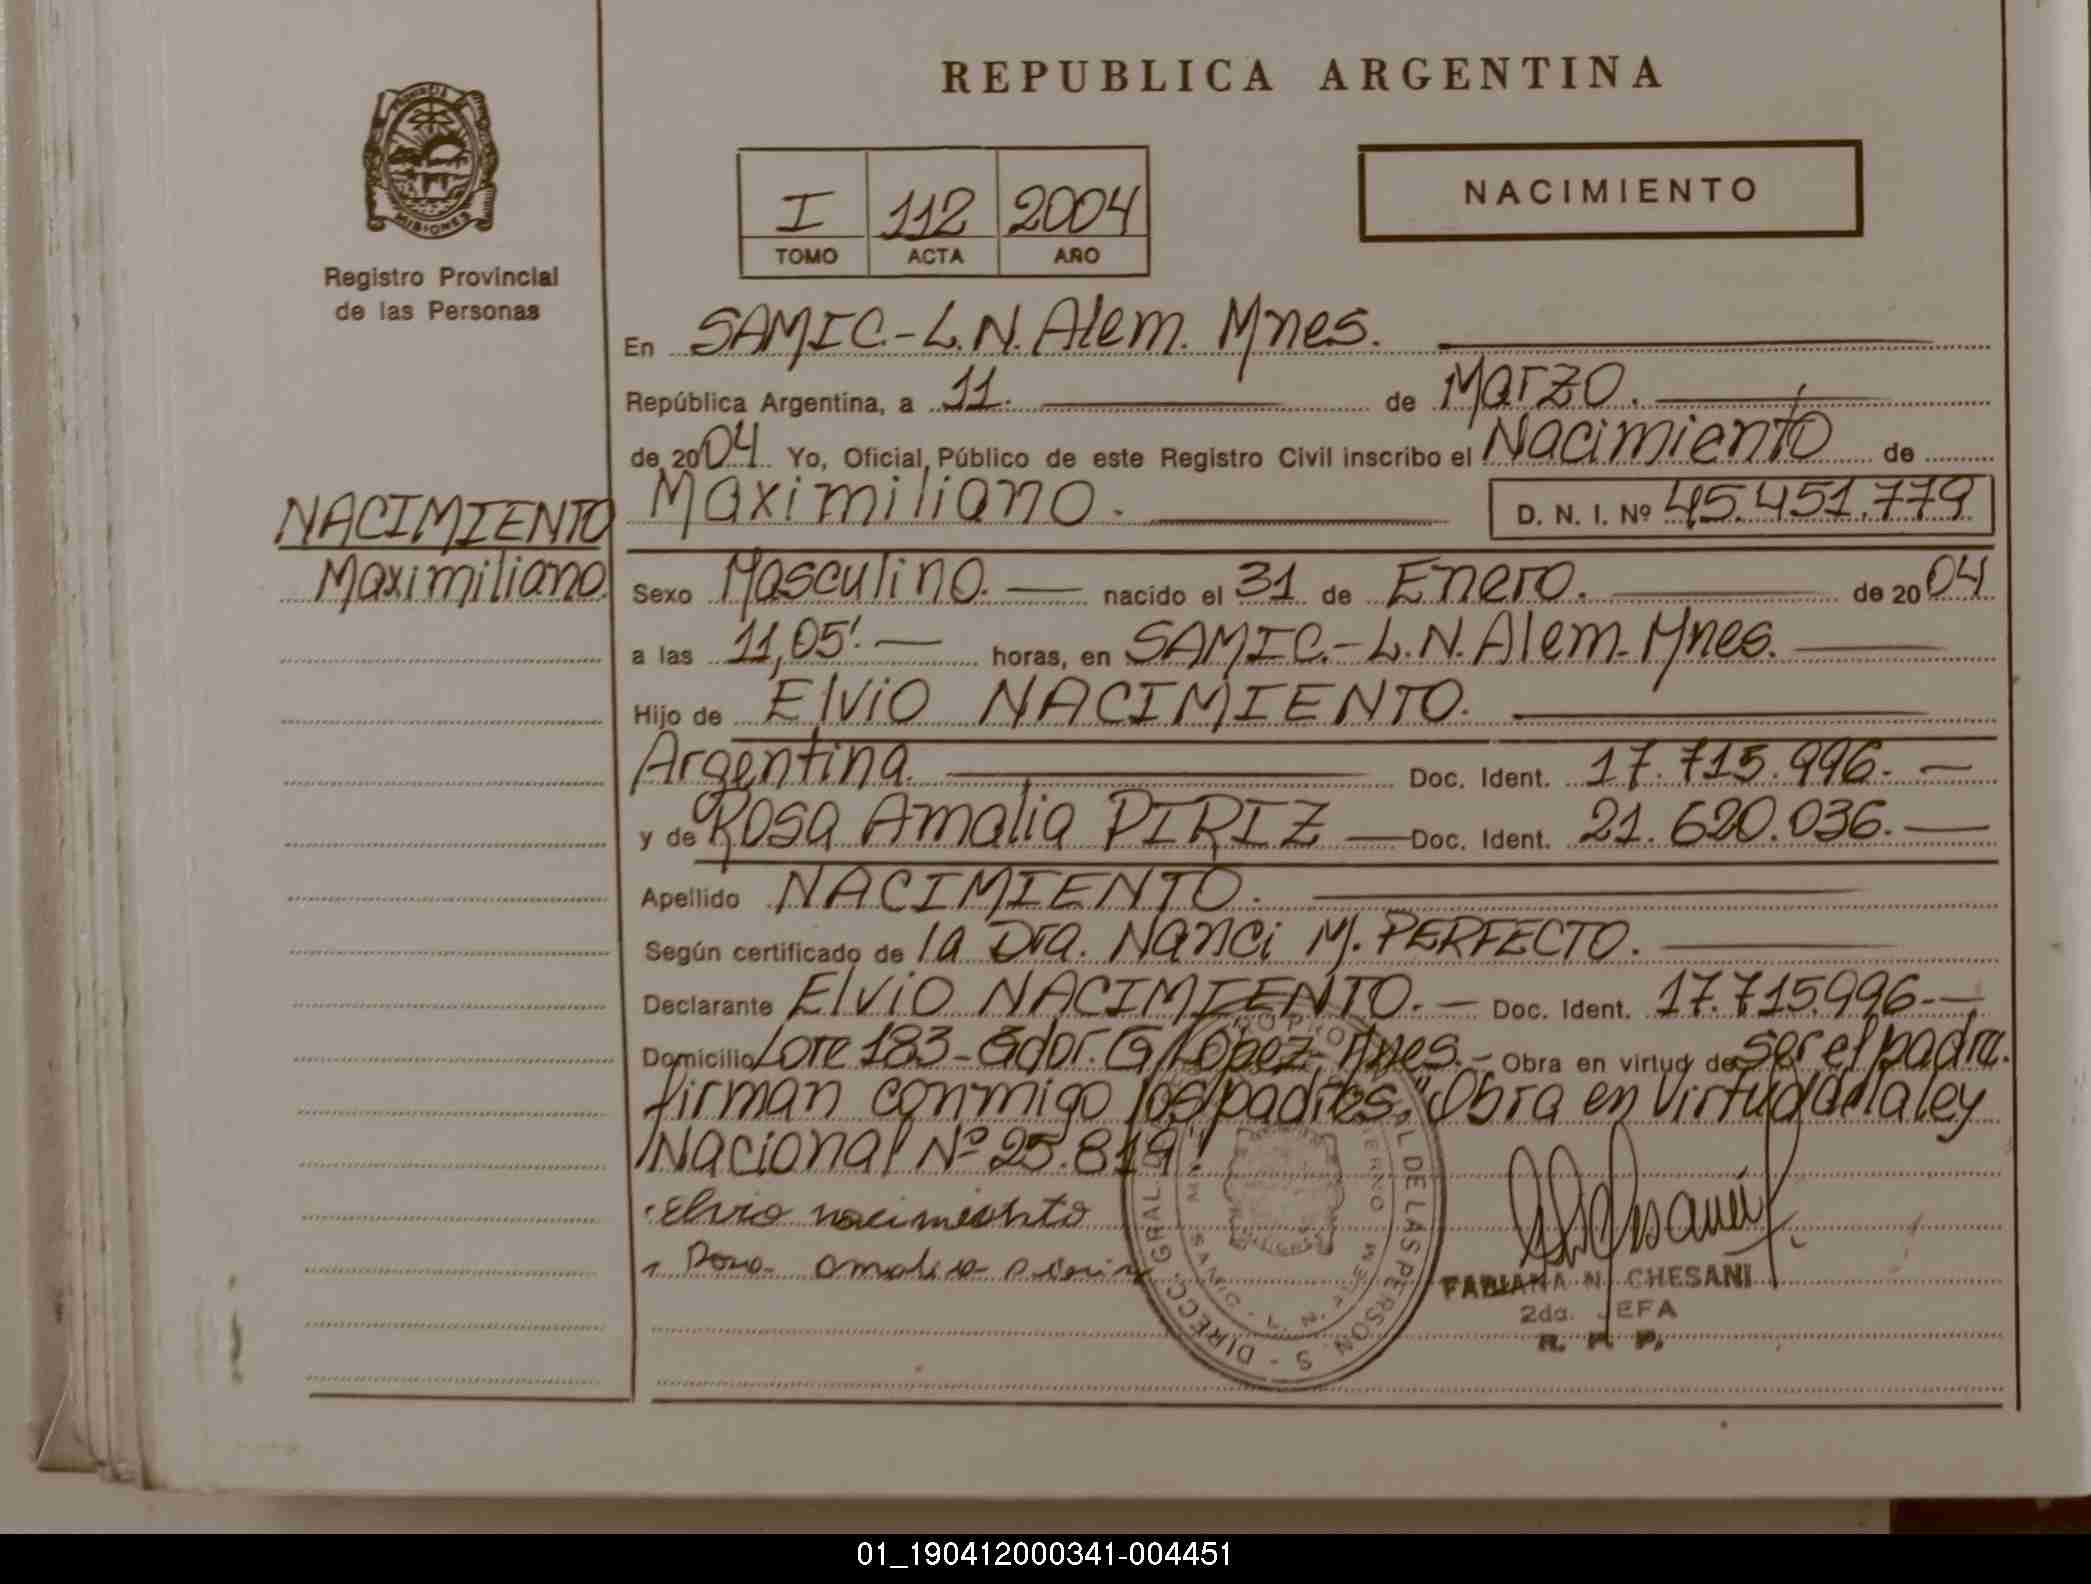 REPUBLICA ARGENTINA
PROVINCIA DE
MISIONES
Registro Provincial
de las Personas
I 112 2004
TOMO ACTA AÑO
NACIMIENTO
En SAMIC.-L.N.Alem. Mnes.
República Argentina, a 11. de Marzo.
de 2004 Yo, Oficial Público de este Registro Civil inscribo el Nacimiento de
Maximiliano. D. N. I. Nº 45.451.779
NACIMIENTO
Maximiliano.
Sexo Masculino. — nacido el 31 de Enero. de 2004
a las 11,05'. — horas, en SAMIC.-L.N.Alem. Mnes.
Hijo de Elvio NACIMIENTO.
Argentina. Doc. Ident. 17.715.996. —
y de Rosa Amalia PIRIZ — Doc. Ident. 21.620.036. —
Apellido NACIMIENTO.
Según certificado de la Dra. Nanci M. PERFECTO.
Declarante Elvio NACIMIENTO. — Doc. Ident. 17.715.996. —
Domicilio Lote 183-Gdor. López, Mnes. - Obra en virtud de ser el padre.
firman conmigo los padres. "Obra en Virtud de la ley
Nacional Nº 25.819".
Elvio nacimiento
Rosa amalia piriz
FABIANA N. CHESANI
2da. JEFA
R. P. P.
01_190412000341-004451